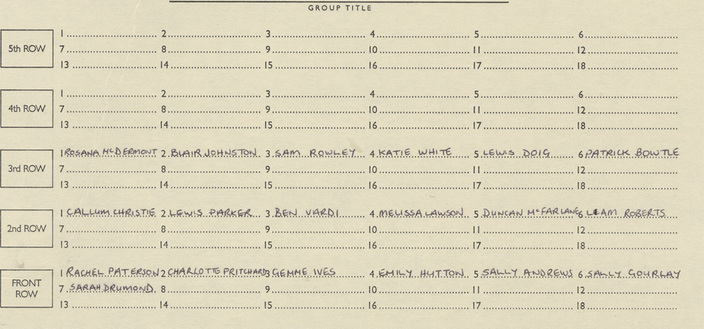 GROUP TITLE
1 2 3 4 5 6
5th ROW 7 8 9 10 11 12
13 14 15 16 17 18
1 2 3 4 5 6
4th ROW 7 8 9 10 11 12
13 14 15 16 17 18
1 ROSANA McDERMONT 2 BLAIR JOHNSTON 3 SAM ROWLEY 4 KATIE WHITE 5 LEWIS DOIG 6 PATRICK BOWTLE
3rd ROW 7 8 9 10 11 12
13 14 15 16 17 18
1 CALLUM CHRISTIE 2 LEWIS PARKER 3 BEN VARDI 4 MELISSA LAWSON 5 DUNCAN McFARLANE 6 LIAM ROBERTS
2nd ROW 7 8 9 10 11 12
13 14 15 16 17 18
1 RACHEL PATERSON 2 CHARLOTTE PRITCHARD 3 GEMME IVES 4 EMILY HUTTON 5 SALLY ANDREWS 6 SALLY GOURLAY
FRONT ROW 7 SARAH DRUMOND 8 9 10 11 12
13 14 15 16 17 18